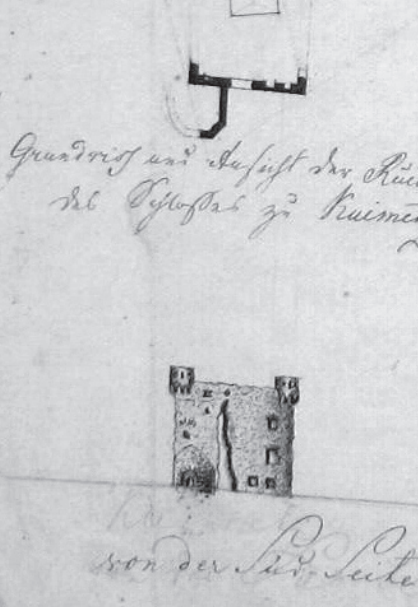 Grundriß und Ansicht der
des Schlosses zu
von der Süd Seite